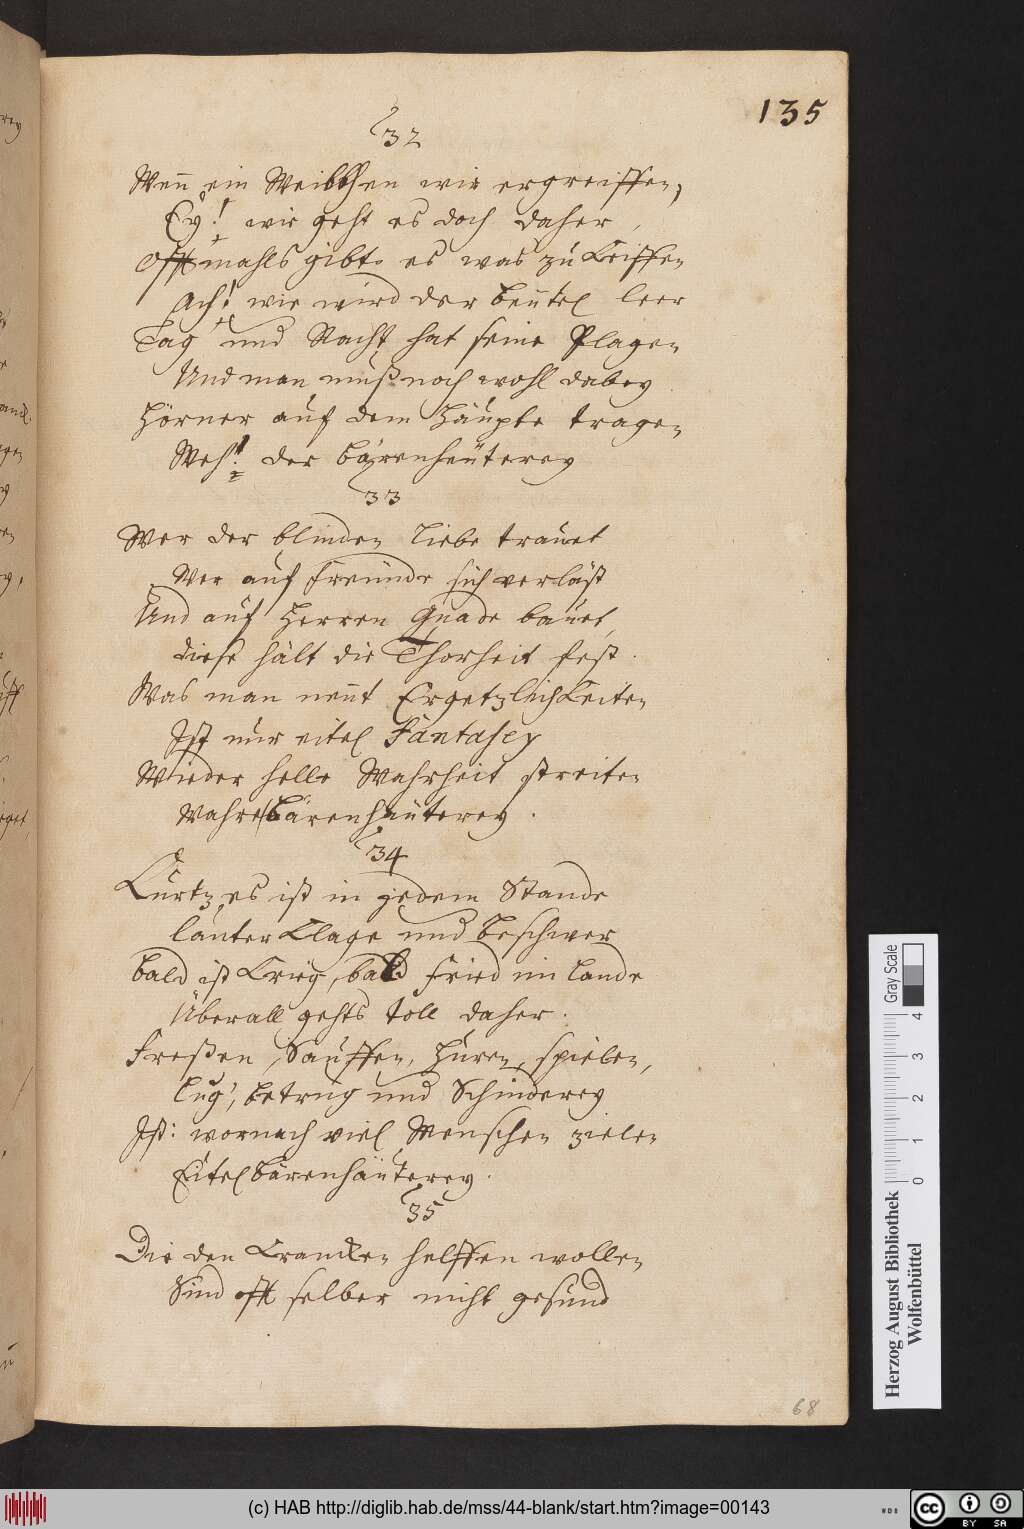 135
32
Wen̄ ein Weibchen wir ergreiffen,
Ey! wie geht es doch daher,
Offtmahls gibts es was zu Keiffen
Ach! wie wird der beut̄el leer
Tag und Nacht hat seine Plagen
Und man muß noch wohl dabey
Hörner auf dem Häupte tragen
Weh! der bärenheüterey
33
Wer der blinden Liebe trauet
Wer auf Freunde sich verläst
Und auf Herren Gnade bauet,
diese hält die Thorheit fest.
Was man nen̄t Ergetzlichkeiten
Ist nur eitel Fantasey
Wieder helle Wahrheit streiten
Wahre bärenhäuterey.
34
Kurtz es ist in jedem Stande
lauter Klage und beschwer
bald ist Krieg, bald Fried im Lande
Überall gehts toll daher.
Freßen, Sauffen, Huren, spielen,
Lug, betrug und Schinderey
Ist: wornach viel Menschen zielen
Eitel bärenhäuterey.
35
Die den Krancken helffen wollen
Sind offt selber nicht gesund
68
Herzog August Bibliothek
Wolfenbüttel
Gray Scale
0 1 2 3 4
(c) HAB http://diglib.hab.de/mss/44-blank/start.htm?image=00143
WDB
cc BY SA